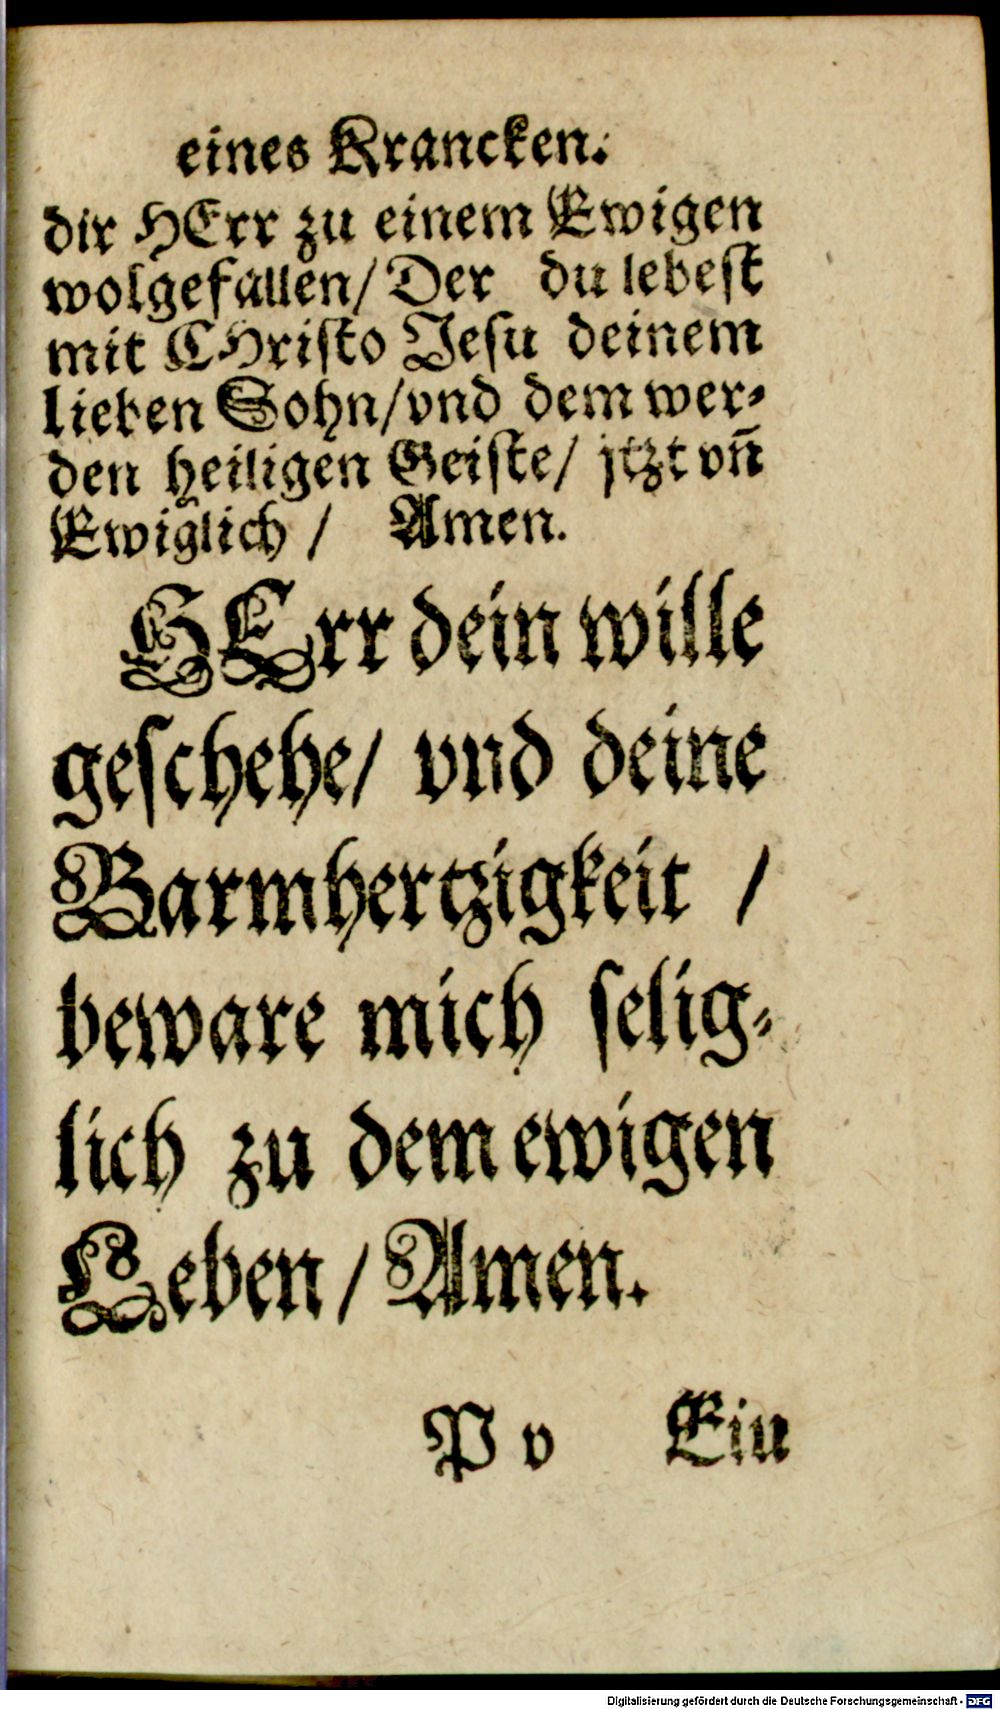 eines Krancken.
dir HErr zu einem Ewigen
wolgefallen/ Der du lebest
mit CHristo Jesu deinem
lieben Sohn/ vnd dem wer⸗
den heiligen Geiste/ jtzt vn̄
Ewiglich / Amen.
HErr dein wille
geschehe/ vnd deine
Barmhertzigkeit /
beware mich selig⸗
lich zu dem ewigen
Leben / Amen.
P v Ein
Digitalisierung gefördert durch die Deutsche Forschungsgemeinschaft - DFG